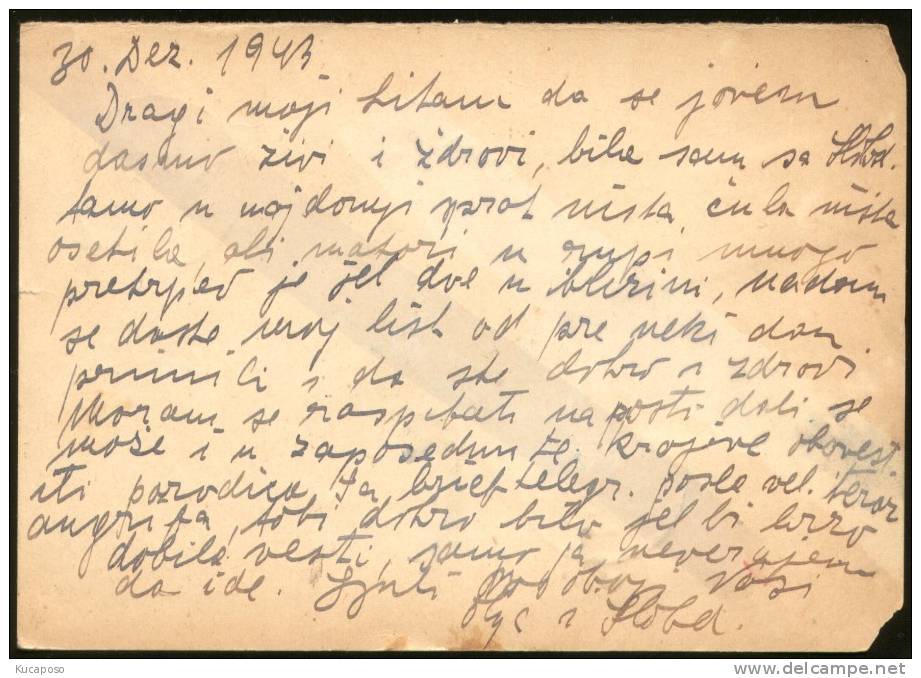 30. Dez. 1943
Dragi moji hitam da se jovem
dasmo živi i zdrovi, bila sam sa Slobd.
tamo u najdonji sprat ništa čula ništa
osetila, ali matori u rupi mnogo
pretrpeo je jel dve u blizini, nadam
se daste moj list od pre neki dan
primili i da ste dobro i zdrovi.
Moram se raspitati na posti dali se
može i u zaposednute krajeve obovest.
iti porodica sa brieftelegr. posle vel. teror
angrifa, tobi dobro bilo jel bi brzo
dobila vesti, samo ja neverujem
da ide. Ljubi Vasi
Olga i Slobd.
Kucaposo
delcampe.net